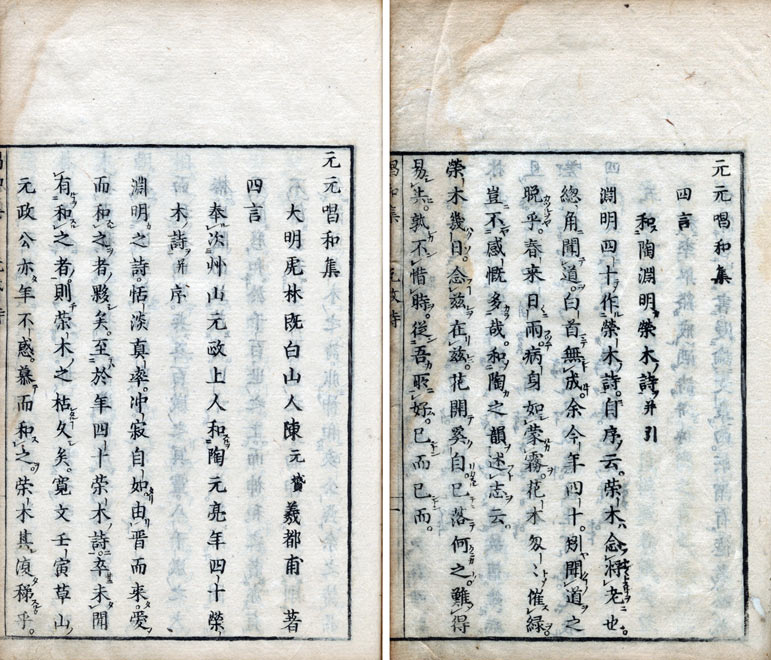 元元唱和集
四言
和陶淵明榮木詩并引
淵明四十作榮木詩。自序云。荣木念將老也。
總角聞道。白首無成。余今年四十。則聞道之
晚乎。春來日雨。病身如蒙霧。花木匆々催緑。
豈不感慨多哉。和陶之韻述志云。
榮木幾日。念茲在茲。花開奚自。已落何之。難得
易失。孰不惜時。從吾所好。已而已而。
元元唱和集
大明虎林既白山人陳元贇羲都甫著
四言
奉次艸山元政上人和陶元亮年四十榮
木詩并序
淵明之詩。恬淡真率。冲寂自如。由晋而來。愛
而和之者夥矣。至於年四十荣木詩。卒未聞
有和之者。則荣木之枯久矣。寛文壬寅草山
元政公亦年不惑。慕而和之。荣木其復稊乎。